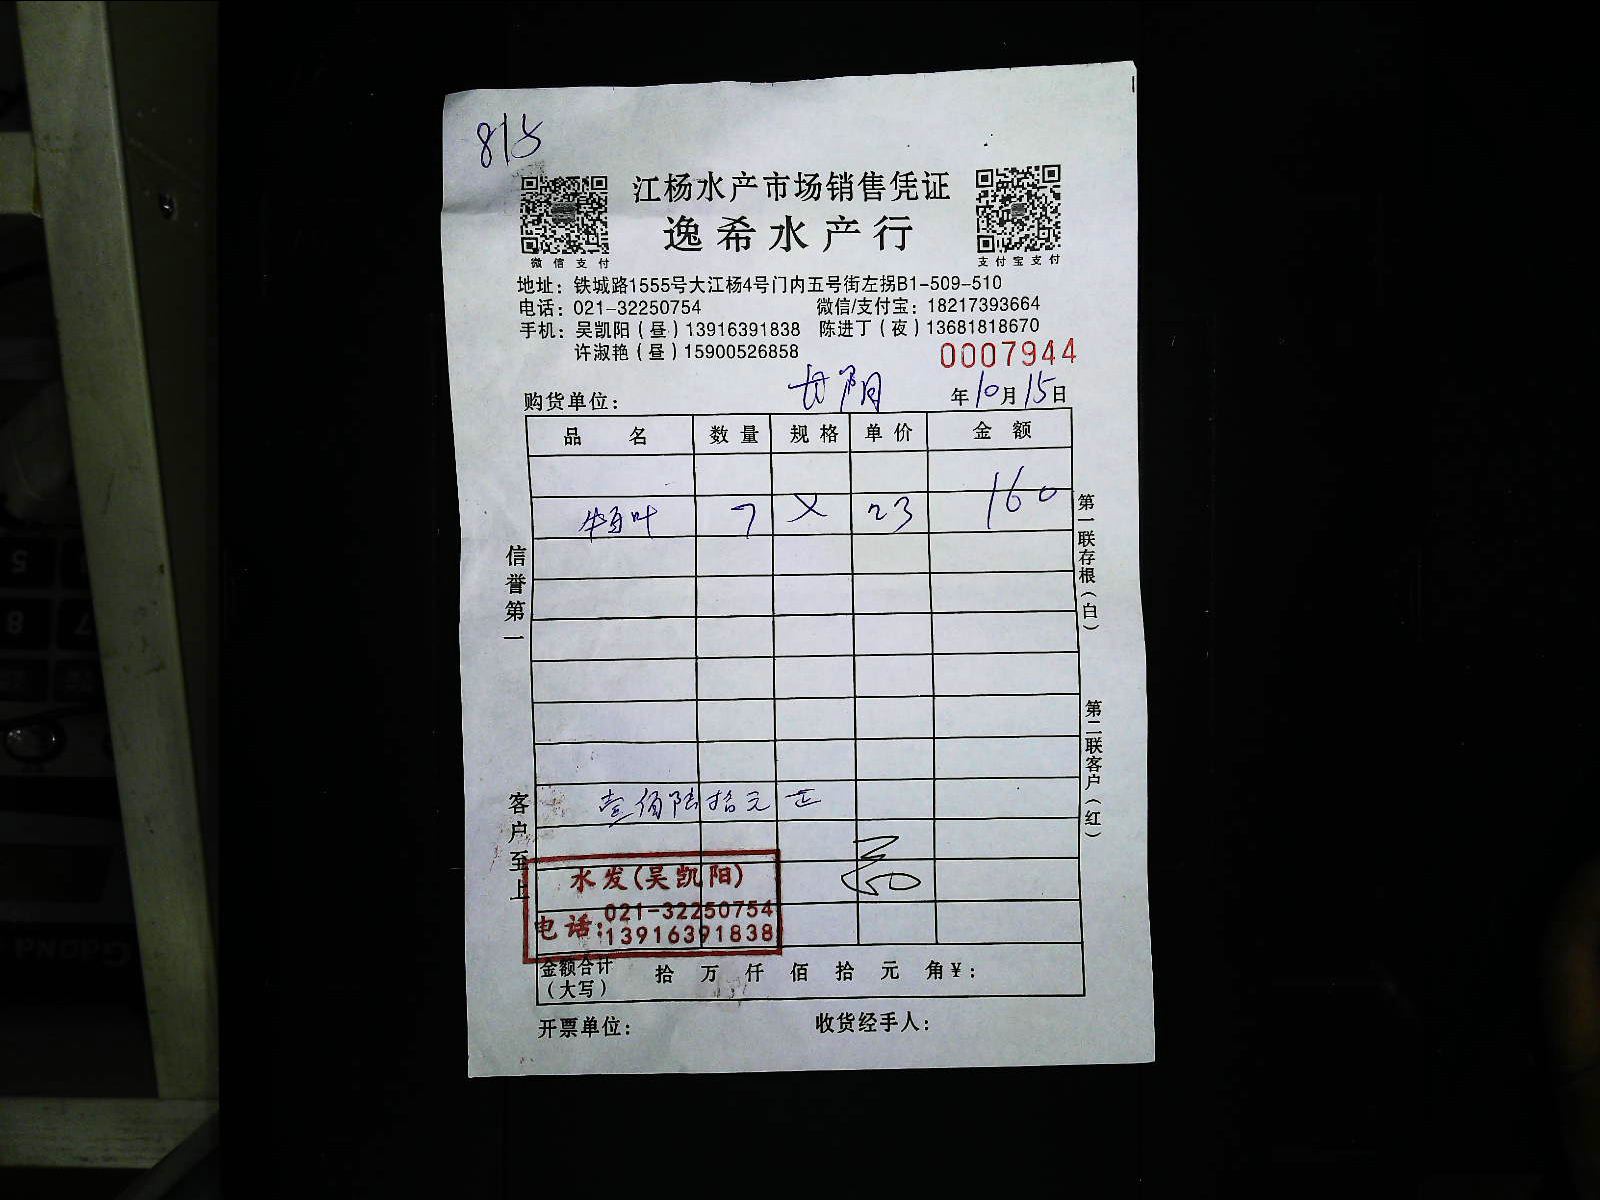 815
江杨水产市场销售凭证
逸希水产行
微信支付
支付宝支付
地址：铁城路1555号大江杨4号门内五号街左拐B1-509-510
电话：021-32250754 微信/支付宝：18217393664
手机：吴凯阳（昼）13916391838 陈进丁（夜）13681818670
许淑艳（昼）15900526858
0007944
购货单位： 年10月15日
品名 数量 规格 单价 金额
牛百叶 7 × 23 160
壹佰陆拾元正
水发(吴凯阳)
电话：021-32250754
13916391838
金额合计（大写） 拾万仟佰拾元角¥：
开票单位： 收货经手人：
信誉第一
客户至上
第一联存根（白）
第二联客户（红）